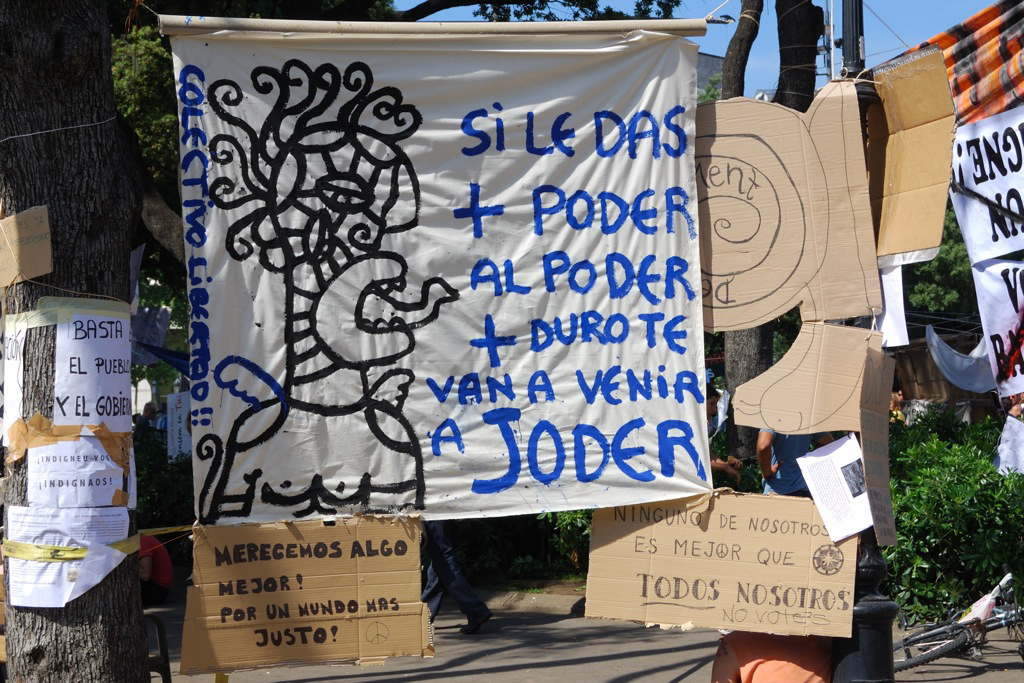 COLECTIVO LIBERTAD!!
SI LE DAS
+ PODER
AL PODER
+ DURO TE
VAN A VENIR
A JODER
ment
BASTA
EL PUEBLO
Y EL GOBIE
¡INDIGNEU-VOS
¡INDIGNAOS!
MERECEMOS ALGO
MEJOR!
POR UN MUNDO MAS
JUSTO!
NINGUNO DE NOSOTROS
ES MEJOR QUE
TODOS NOSOTROS
NO VOTES